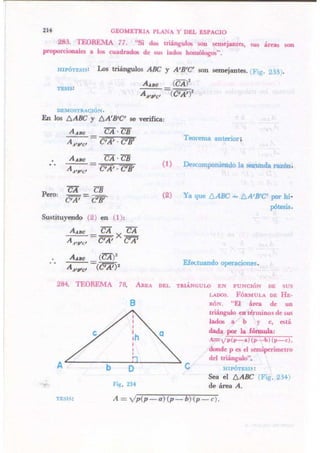 216 GEOMETRIA PLANA Y DEL ESPACIO
283. TEOREMA 77. "Si dos triángulos son semejantes, sus áreas son
proporcionales a los cuadrados de sus lados homólogos".
HIPÓTESIS: Los triángulos ABC y A'B'C' son semejantes. (Fig. 233).
TESIS: A_ABC / A_A'B'C' = (CA)² / (C'A')²
DEMOSTRACIÓN.
En los △ABC y △A'B'C' se verifica:
A_ABC / A_A'B'C' = CA · CB / C'A' · C'B' Teorema anterior;
∴ A_ABC / A_A'B'C' = CA · CB / C'A' · C'B' (1) Descomponiendo la segunda razón.
Pero: CA / C'A' = CB / C'B' (2) Ya que △ABC ~ △A'B'C' por hi-
pótesis.
Sustituyendo (2) en (1):
A_ABC / A_A'B'C' = CA / C'A' × CA / C'A'
∴ A_ABC / A_A'B'C' = (CA)² / (C'A')² Efectuando operaciones.
284. TEOREMA 78. AREA DEL TRIÁNGULO EN FUNCIÓN DE SUS
LADOS. FÓRMULA DE HE-
RÓN. "El área de un
triángulo en términos de sus
lados a, b y c, está
dada por la fórmula:
A=√p(p−a)(p−b)(p−c),
donde p es el semiperímetro
del triángulo".
HIPÓTESIS:
Sea el △ABC (Fig. 234)
de área A.
B
c h a
A b D C
Fig. 234
TESIS: A = √p(p−a)(p−b)(p−c).